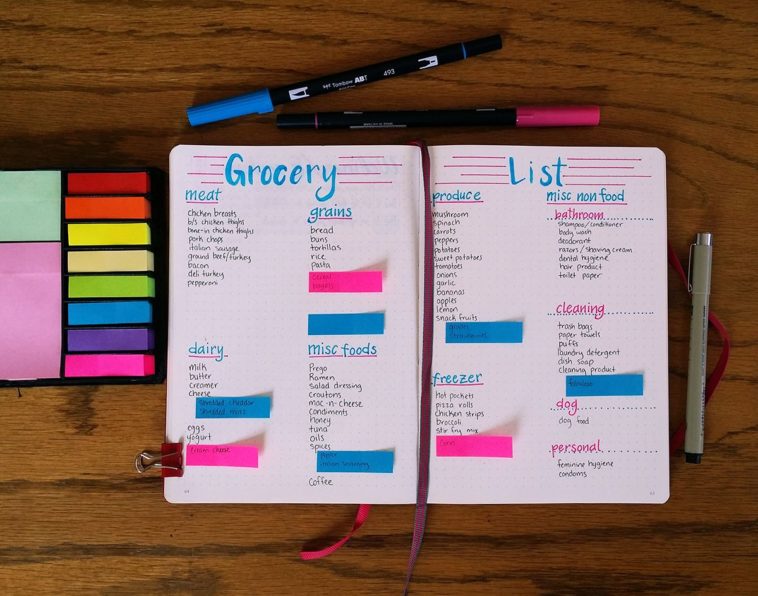 Tombow ABT 493
Grocery List
meat
Chicken breasts
b/s chicken thighs
bone-in chicken thighs
pork chops
italian sausage
ground beef/turkey
bacon
deli turkey
pepperoni
dairy
milk
butter
creamer
cheese
shredded cheddar
shredded mozz
eggs
yogurt
cream cheese
grains
bread
buns
tortillas
rice
pasta
cereal
bagels
misc foods
Prego
Ramen
salad dressing
croutons
mac-n-cheese
condiments
honey
tuna
oils
spices
italian seasoning
Coffee
produce
mushroom
spinach
carrots
peppers
potatoes
sweet potatoes
tomatoes
onions
garlic
bananas
apples
lemon
snack fruits
strawberries
freezer
hot pockets
pizza rolls
chicken strips
broccoli
stir fry mix
corn
misc non food
bathroom
shampoo/conditioner
body wash
deodorant
razors/shaving cream
dental hygiene
hair product
toilet paper
cleaning
trash bags
paper towels
puffs
laundry detergent
dish soap
cleaning product
dog
dog food
personal
feminine hygiene
condoms